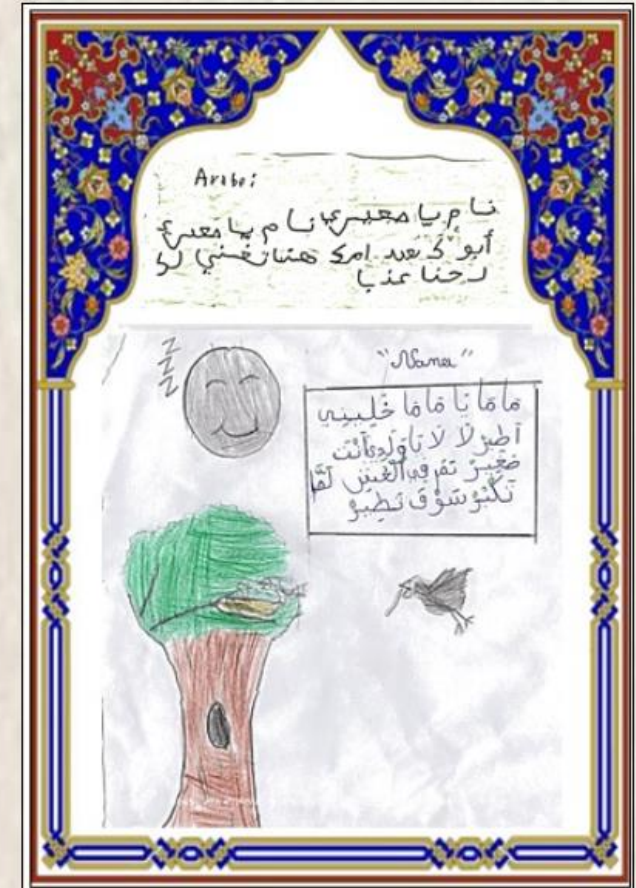 Arabe:
نام يا صغيري نام يا صغيري
أبوك بعيد امك هنا تغني لك
لحنا عذبا
zzz
"Nana"
مَامَا يَا مَامَا خَلِينِي
أَطِيرْ لَا لَا يَا وَلَدِي أَنْتَ
صَغِيرْ نَمْ فِي الْعُشْ لَمَّا
تَكْبُرْ سَوْفَ تَطِيرْ